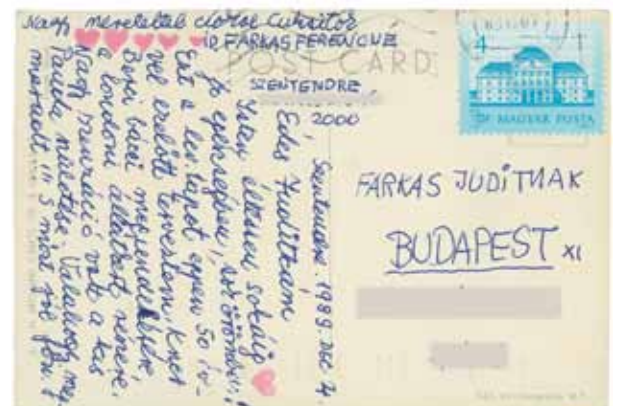 Nagy szeretettel csókol
ID FARKAS FERENCNÉ
POST CARD
SZENTENDRE
2000
4
MAGYAR POSTA
FARKAS JUDITNAK
BUDAPEST XI
Szentendre. 1989. dec. 4.
Édes Juditkám
Isten éltessen sokáig
jó egészségben, sok örömben,
Ezt a lev. lapot éppen 50 év-
vel ezelőtt terveztem
Béni bácsi megrendelésére,
a londoni állatkert részére.
Nagy szenzáció volt a kis
Panda születése. Valahogy meg
maradt !!! S most